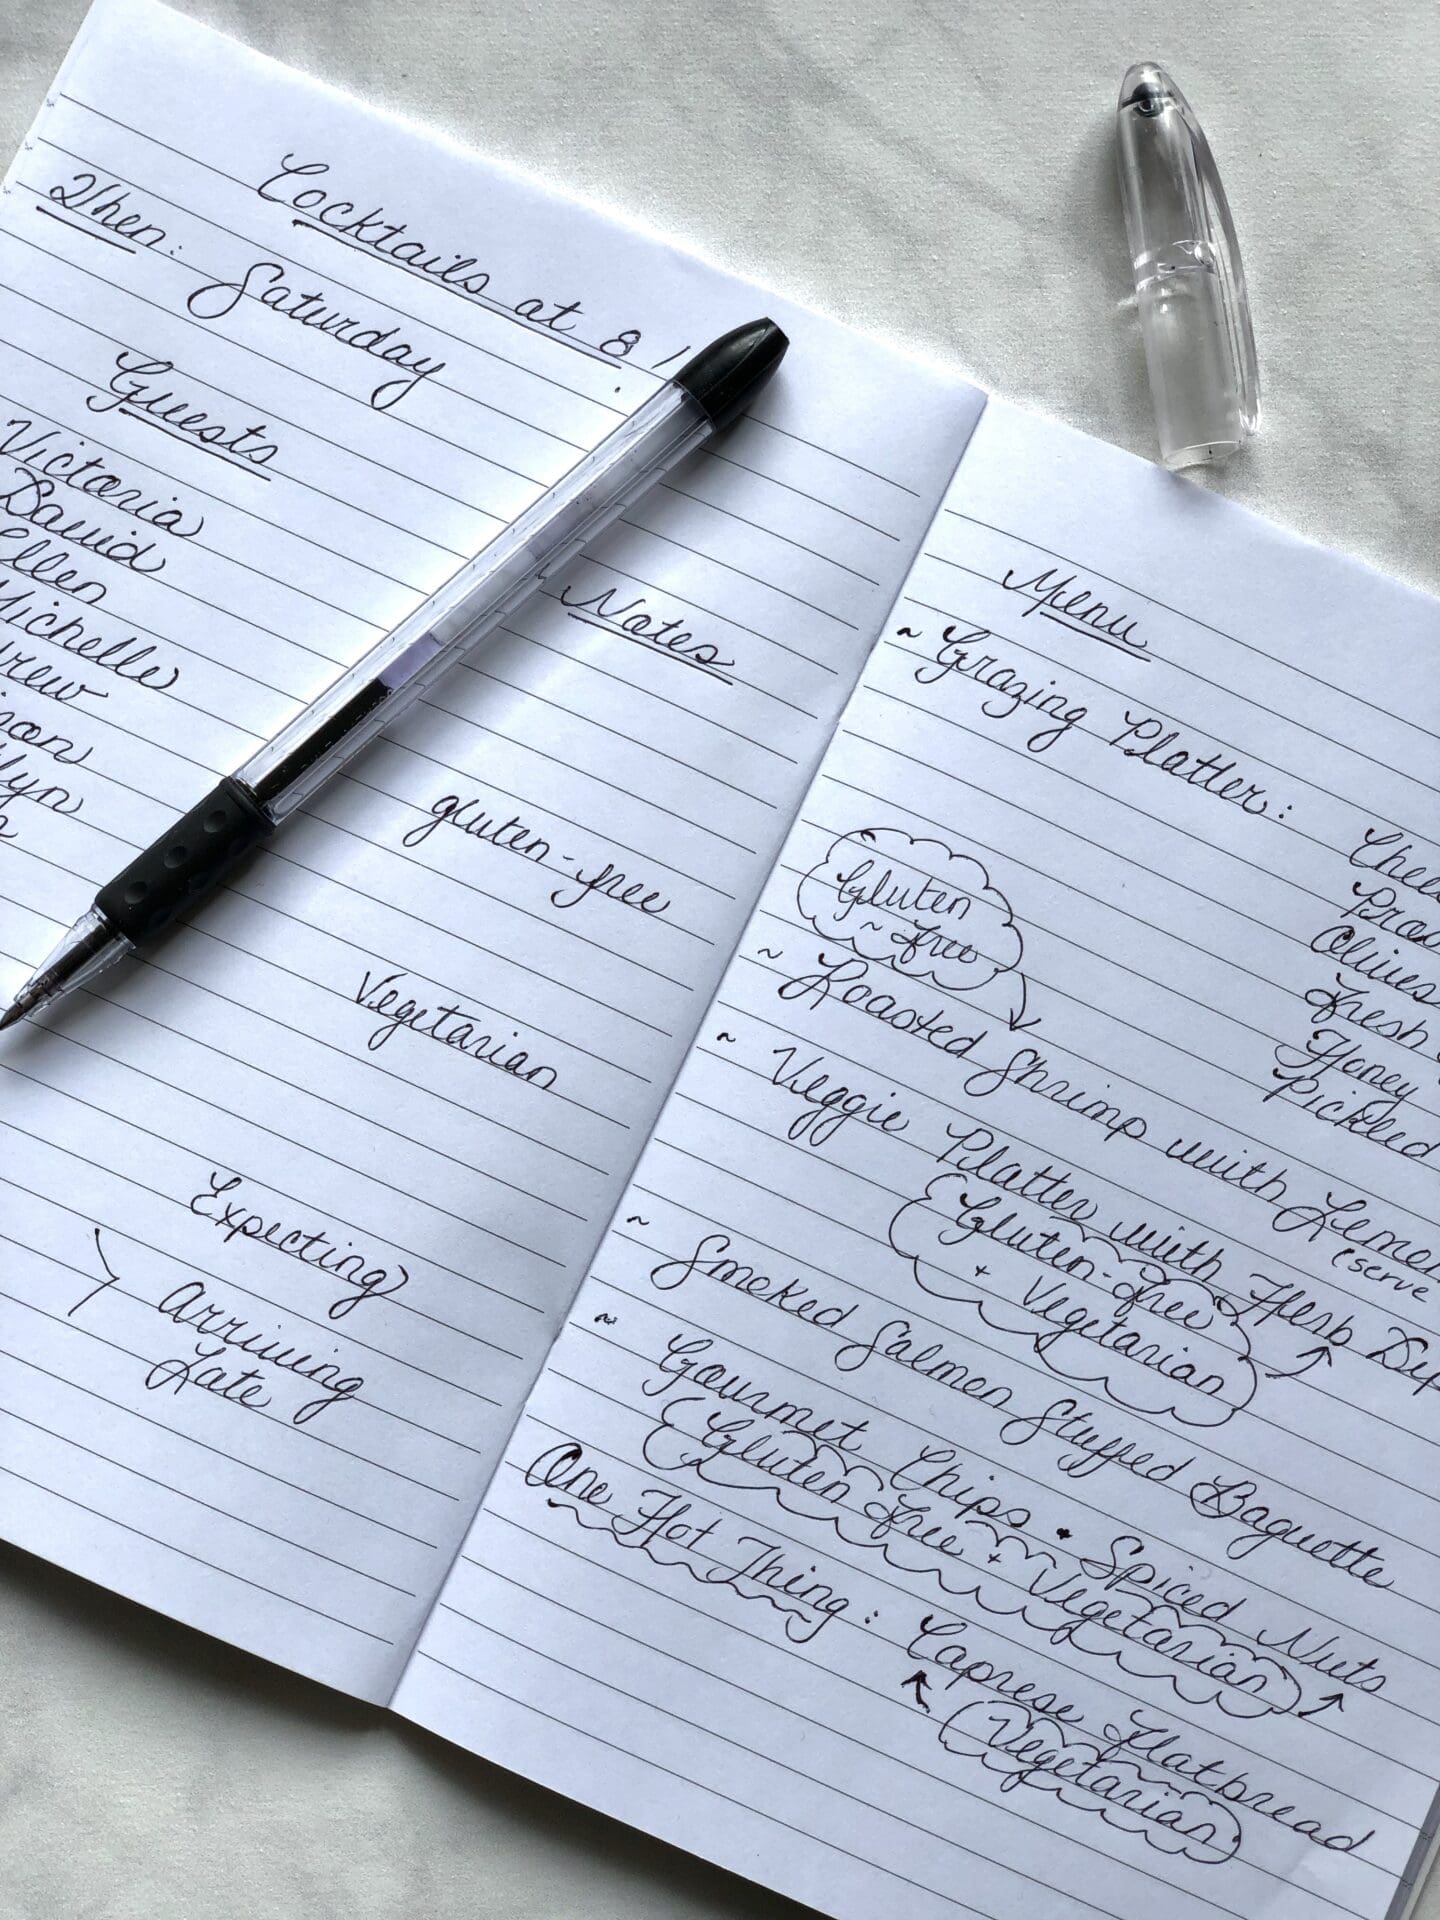 Cocktails at 8!
When:
Saturday
Guests
Victoria
David
Ellen
Michelle
Notes
gluten-free
Vegetarian
Expecting
Arriving
Late
Menu
~ Grazing Platter:
Olives
Fresh
Honey
Pickled
Gluten
~ Free
~ Roasted Shrimp with
(serve
~ Veggie Platter with Herb
Gluten-Free
+ Vegetarian
~ Smoked Salmon Stuffed Baguette
~ Gourmet Chips • Spiced Nuts
Gluten Free + Vegetarian
One Hot Thing: Caprese Flatbread
Vegetarian